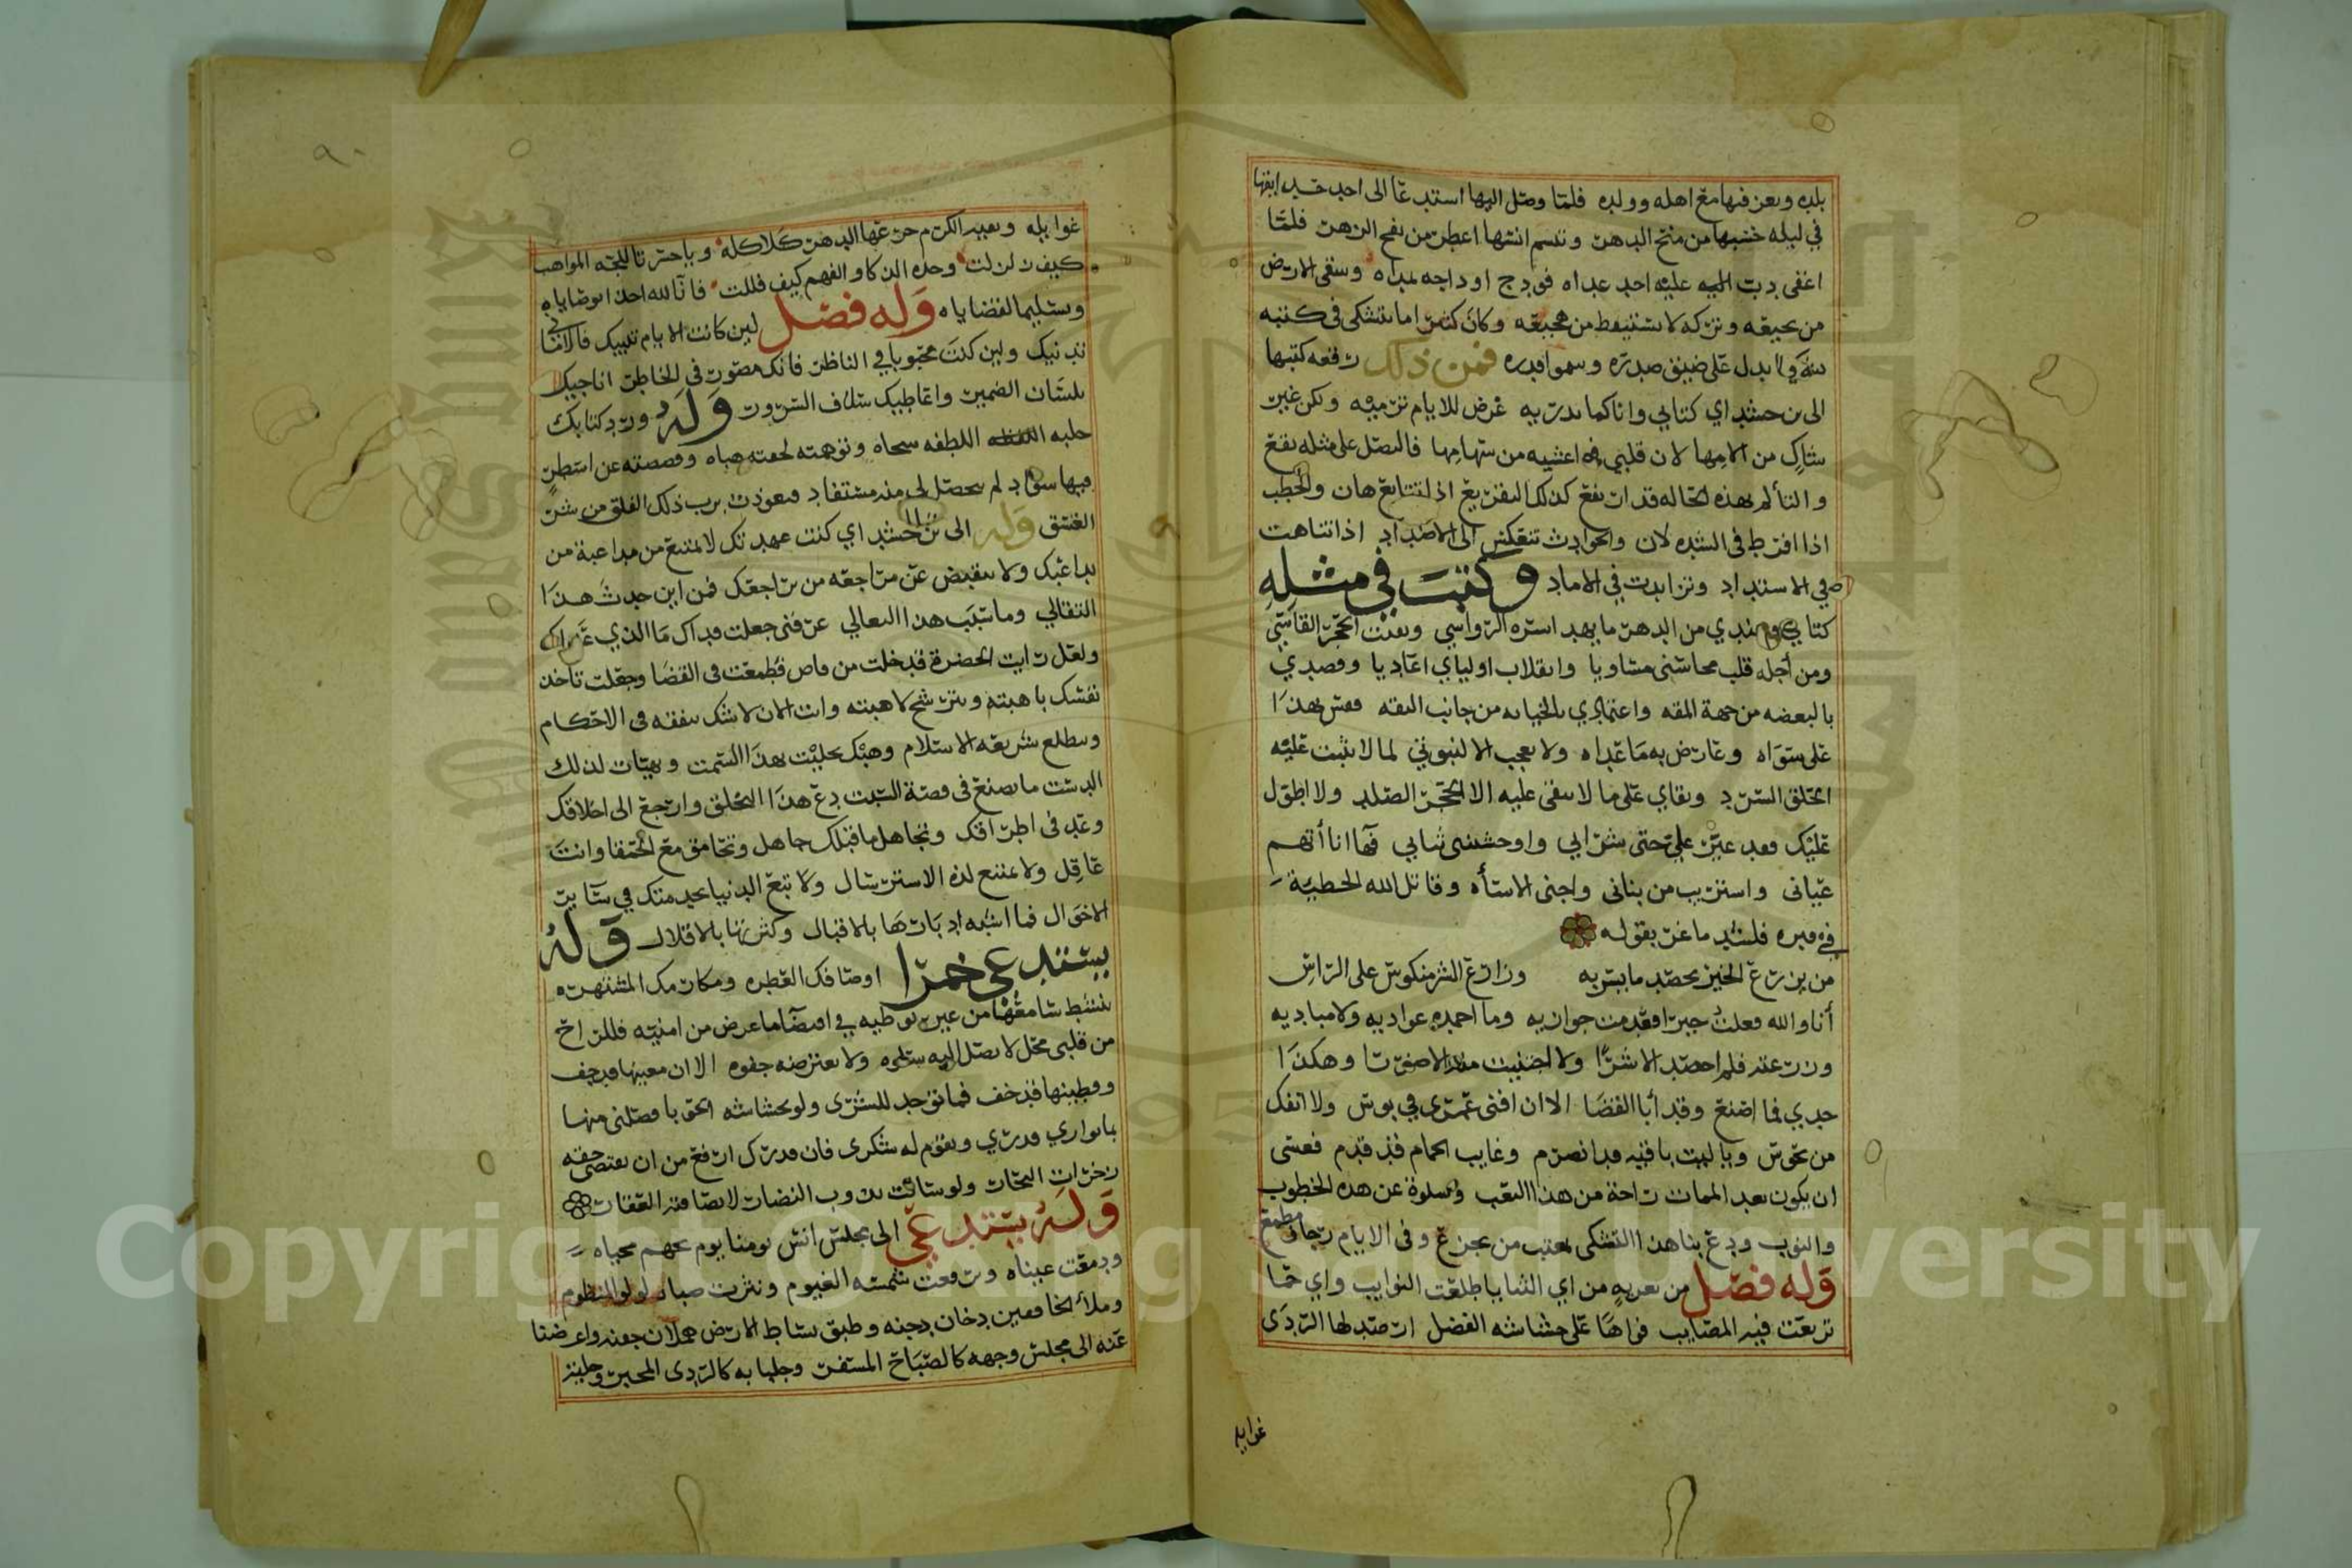 بلده وبعز فيها مع اهله وولده فلما وصل اليها استدعا الى احد
في ليله خشيها من منح الدهر ونسم انسها اعطر من نفح الزهر فلما
اغفى دبت اليه عليه احد عداه فودج اوداجه بمداه وسقى الارض
من نجيعه وتركه لا يستيقظ من هجيعه وكان كثيرا ما يتشكى في كتبه
على ضيق صدره وسمو قدره فمن ذلك رقعه كتبها
الى بن حسداي كتابي وانا كما تدريه غرض للايام ترميه ولكن غير
شاك من الامها لان قلبي في اغشيه من سهامها فالنصل على مثله يقع
والتألم بهذه الحاله قد ارتفع كذلك التقريع اذا تتابع هان والخطب
اذا افرط في الشده لان والحوادث تنعكس الى الاضداد اذا تناهت
في الاشتداد وتزايدت في الاماد وكتب في مثله
كتابي وعندي من الدهر ما يهد ايسره الرواسي ويفتت الحجر القاسي
ومن أجله قلب محاسني مساويا وانقلاب اولياي اعاديا وقصدي
بالبغضه من جهة المقه واعتمادي بالخيانه من جانب الثقه فقس بهذا
على سواه وعارض به ما عداه ولا تعجب الا لثبوتي لما لا يثبت عليه
الحلق السرد وبقاي على ما لا يبقى عليه الا الحجر الصلد ولا اطول
عليك فقد غير علي حتى شرابي واوحشني ثيابي فها انا أتهم
عياني واستريب من بناني واجني الاسأه وقاتل الله الحطيئة
في فيره فلشد ما غر بقوله
من يزرع الخير يحصد ما يسر به وزارع الشر منكوس على الراس
أنا والله فعلت خيرا فعدمت جوازيه وما احمده عواديه ولا مباديه
وزرعته فلم احصد الا شرا ولا اجتنيت منه الا ضررا وهكذا
جدي فما اصنع وقد أبا القضا الا ان افنى عمري في بوس ولا انفك
من نحوس ويا ليت باقيه قد انصرم وغايب الحمام قد قدم فعسى
ان يكون بعد الممات راحة من هذا التعب وسلوة عن هذه الخطوب
والنوب ودع بنا هذا التشكي معتب من يجزع وفي الايام رجا ومطمع
وله فصل من تعزيه من اي الثنايا طلعت النوايب واي حما
رتعت فيه المصايب فواها على حشاشه الفضل ارصد لها الردى
غوايله
غوايله وبقيه الكرم جر عنها الدهر كلاكله ويا حسرتا للجه المواهب
كيف وحده الذكا والفهم كيف فللت فانا لله اخذا بوصاياه
وتسليما لقضاياه وله فصل لين كانت الايام تقصيك فالاماني
تدنيك ولين كنت محجوبا في الناظر فانك مصور في الخاطر اناجيك
بلسان الضمير واعاطيك سلاف السرور وله ورد كتابك
حلبه اللطفه سحاه وتوهمته لخفته هباه وفصصته عن اسطر
فيها سواد لم يحصل لي منه مستفاد فعوذت برب ذلك الفلق من شر
الغسق وله الى بن حسداي كنت عهدتك لا تمتنع من مداعبة من
يداعبك ولا تنقبض عن مراجعه من يراجعك فمن اين حدث هذا
التعالي وما سبب هذا التغالي عرفني جعلت فداك ما الذي عداك
ولعل رايت الحضرة قد خلت من قاض فطمعت في القضا وجعلت تاخذ
نفسك باهبته وتترشح لاهبته وانت الان لا شك تتفقه في الاحكام
وتطلع شريعه الاسلام وهبك تحليت بهذا السمت وتهيات لذلك
الدست ما تصنع في قصة السبت دع هذا التخلق وارجع الى اخلاقك
وعد في اطراقك وتجاهل ما قبلك جاهل وتحامق مع الحمقا وانت
عاقل ولا تمنع لذه الاسترسال ولا تتبع الدنيا بجد منك في ساير
الاحوال فما اشبه ادبارها بالاقبال وكثرتها بالاقلال وله
يستدعي خمرا اوصافك العطره ومكارمك المشتهره
تنشط سامعها من غير توطيه في اقتضا ما عرض من امنيه فللراح
من قلبي محل لا يصل اليه سلوه ولا يعترضه جفوه الا ان معينها قد جف
وقطينها قد خف فما توجد للشرى ولو بحشاشه الحق با فصلني منها
بما يوازي قدري ويقوم له شكري فان قدرك ارفع من ان يقتضي حقه
زخرات البحار ولو سالت بذوب النضار لا بصافيه العقار
وله يستدعي الى مجلس انس يومنا يوم تجهم محياه
ودمعت عيناه وبرقعت شمسه الغيوم ونثرت صباه لولو المنظوم
وملأ الخافقين دخان دجنه وطبق بساط الارض هملان جفنه واعرضنا
عنه الى مجلس وجهه كالصباح المسفر وجلبابه كالردى المحبر وحليه